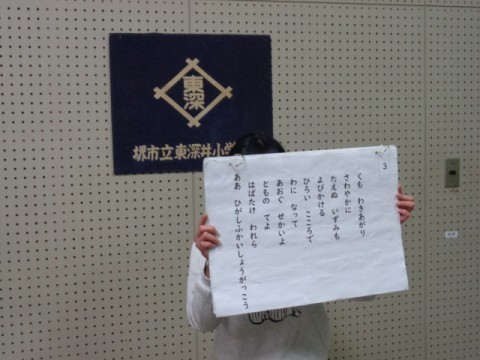 東深
堺市立東深井小学
3
くも わきあがり
さわやかに
たえぬ いずみも
よびかける
ひろい こころで
わに なって
あおぐ せかいよ
とものてよ
はばたけ われら
ああ ひがしふかいしょうがっこう